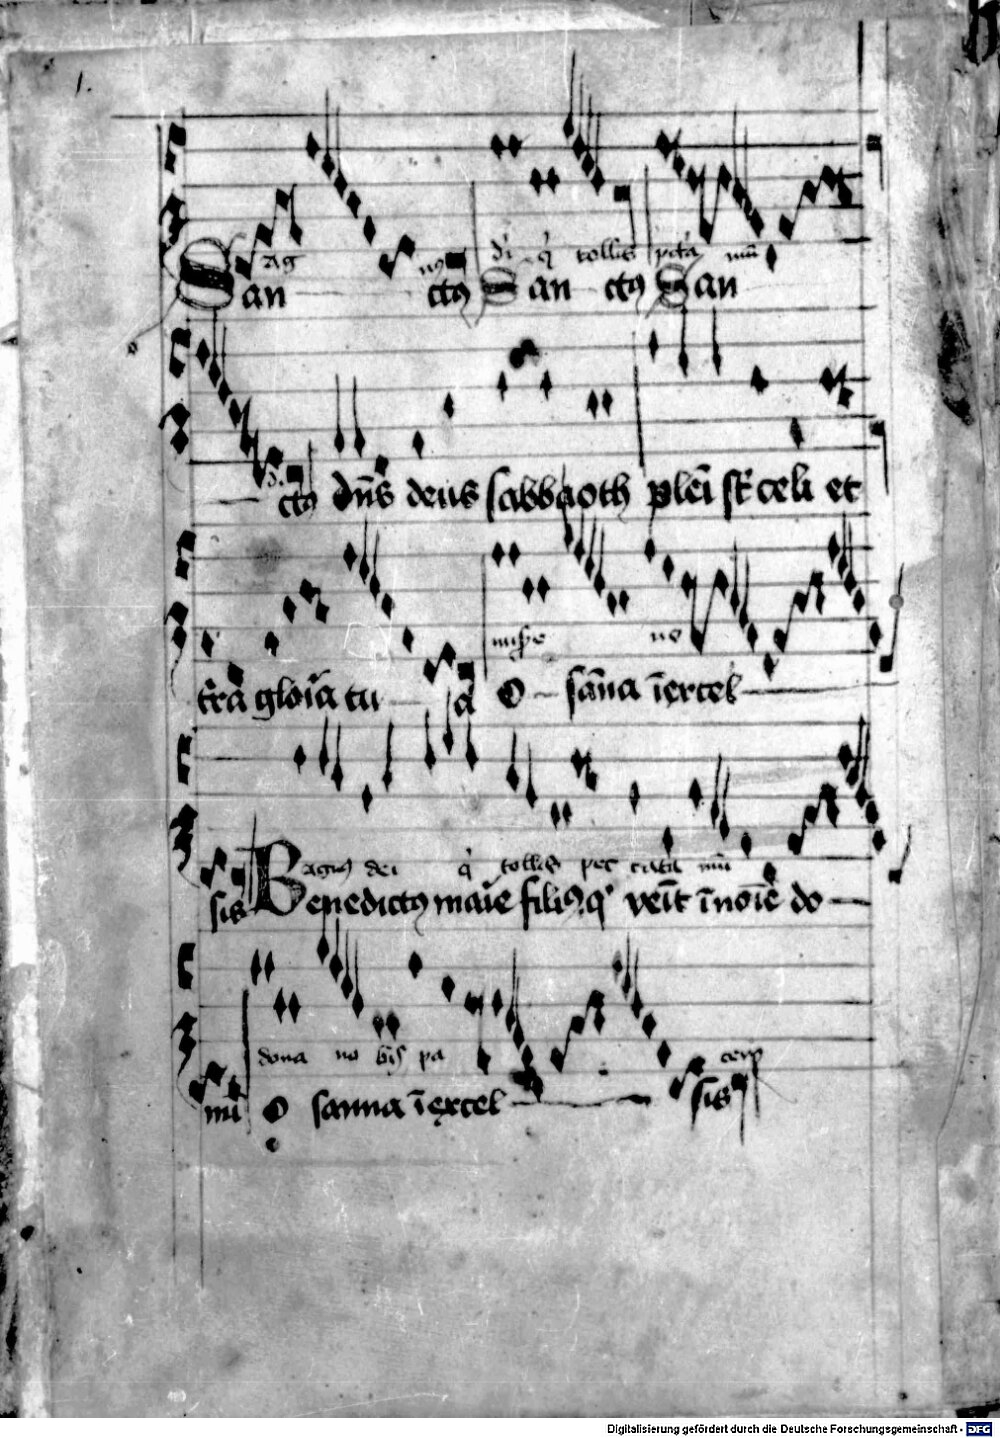 1.
Ag nꝰ di q̇ tollis pctā mū
San ctꝰ San ctꝰ San
d.
ctꝰ dn̄s deus sabbaoth plēi st̄ celi et
misere no
t̄ra gloīa tu a O sāna ī excel
agnꝰ dei q̇ tollis pec cata mū
sis Benedictꝰ maīe filiꝰ q̇ veīt ī noīe do
dona no bis pa cem
mī O sanna ī excel sis
Digitalisierung gefördert durch die Deutsche Forschungsgemeinschaft - DFG